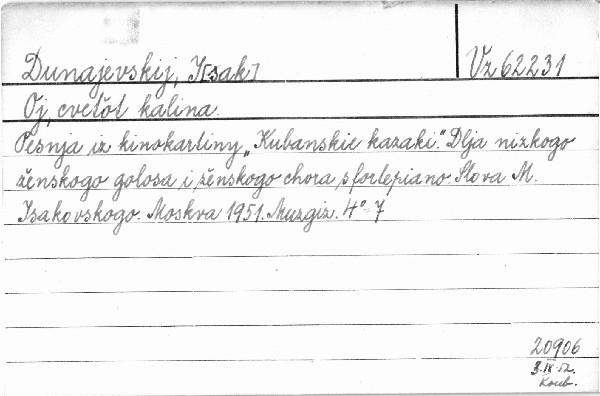 Dunajevskij, I[sak]
Vz 62231
Oj, cvetöt kalina.
Pesnja iz kinokartiny „Kubanskie kazaki." Dlja nizkogo
ženskogo golosa i ženskogo chora s fortepiano. Slova M.
Isakovskogo. Moskva 1951. Muzgiz. 4° 7
20906
3.IX.52.
Koub.